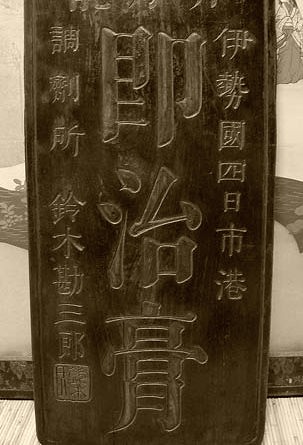 伊勢國四日市港
即治膏
調劑所 鈴木勘三郎